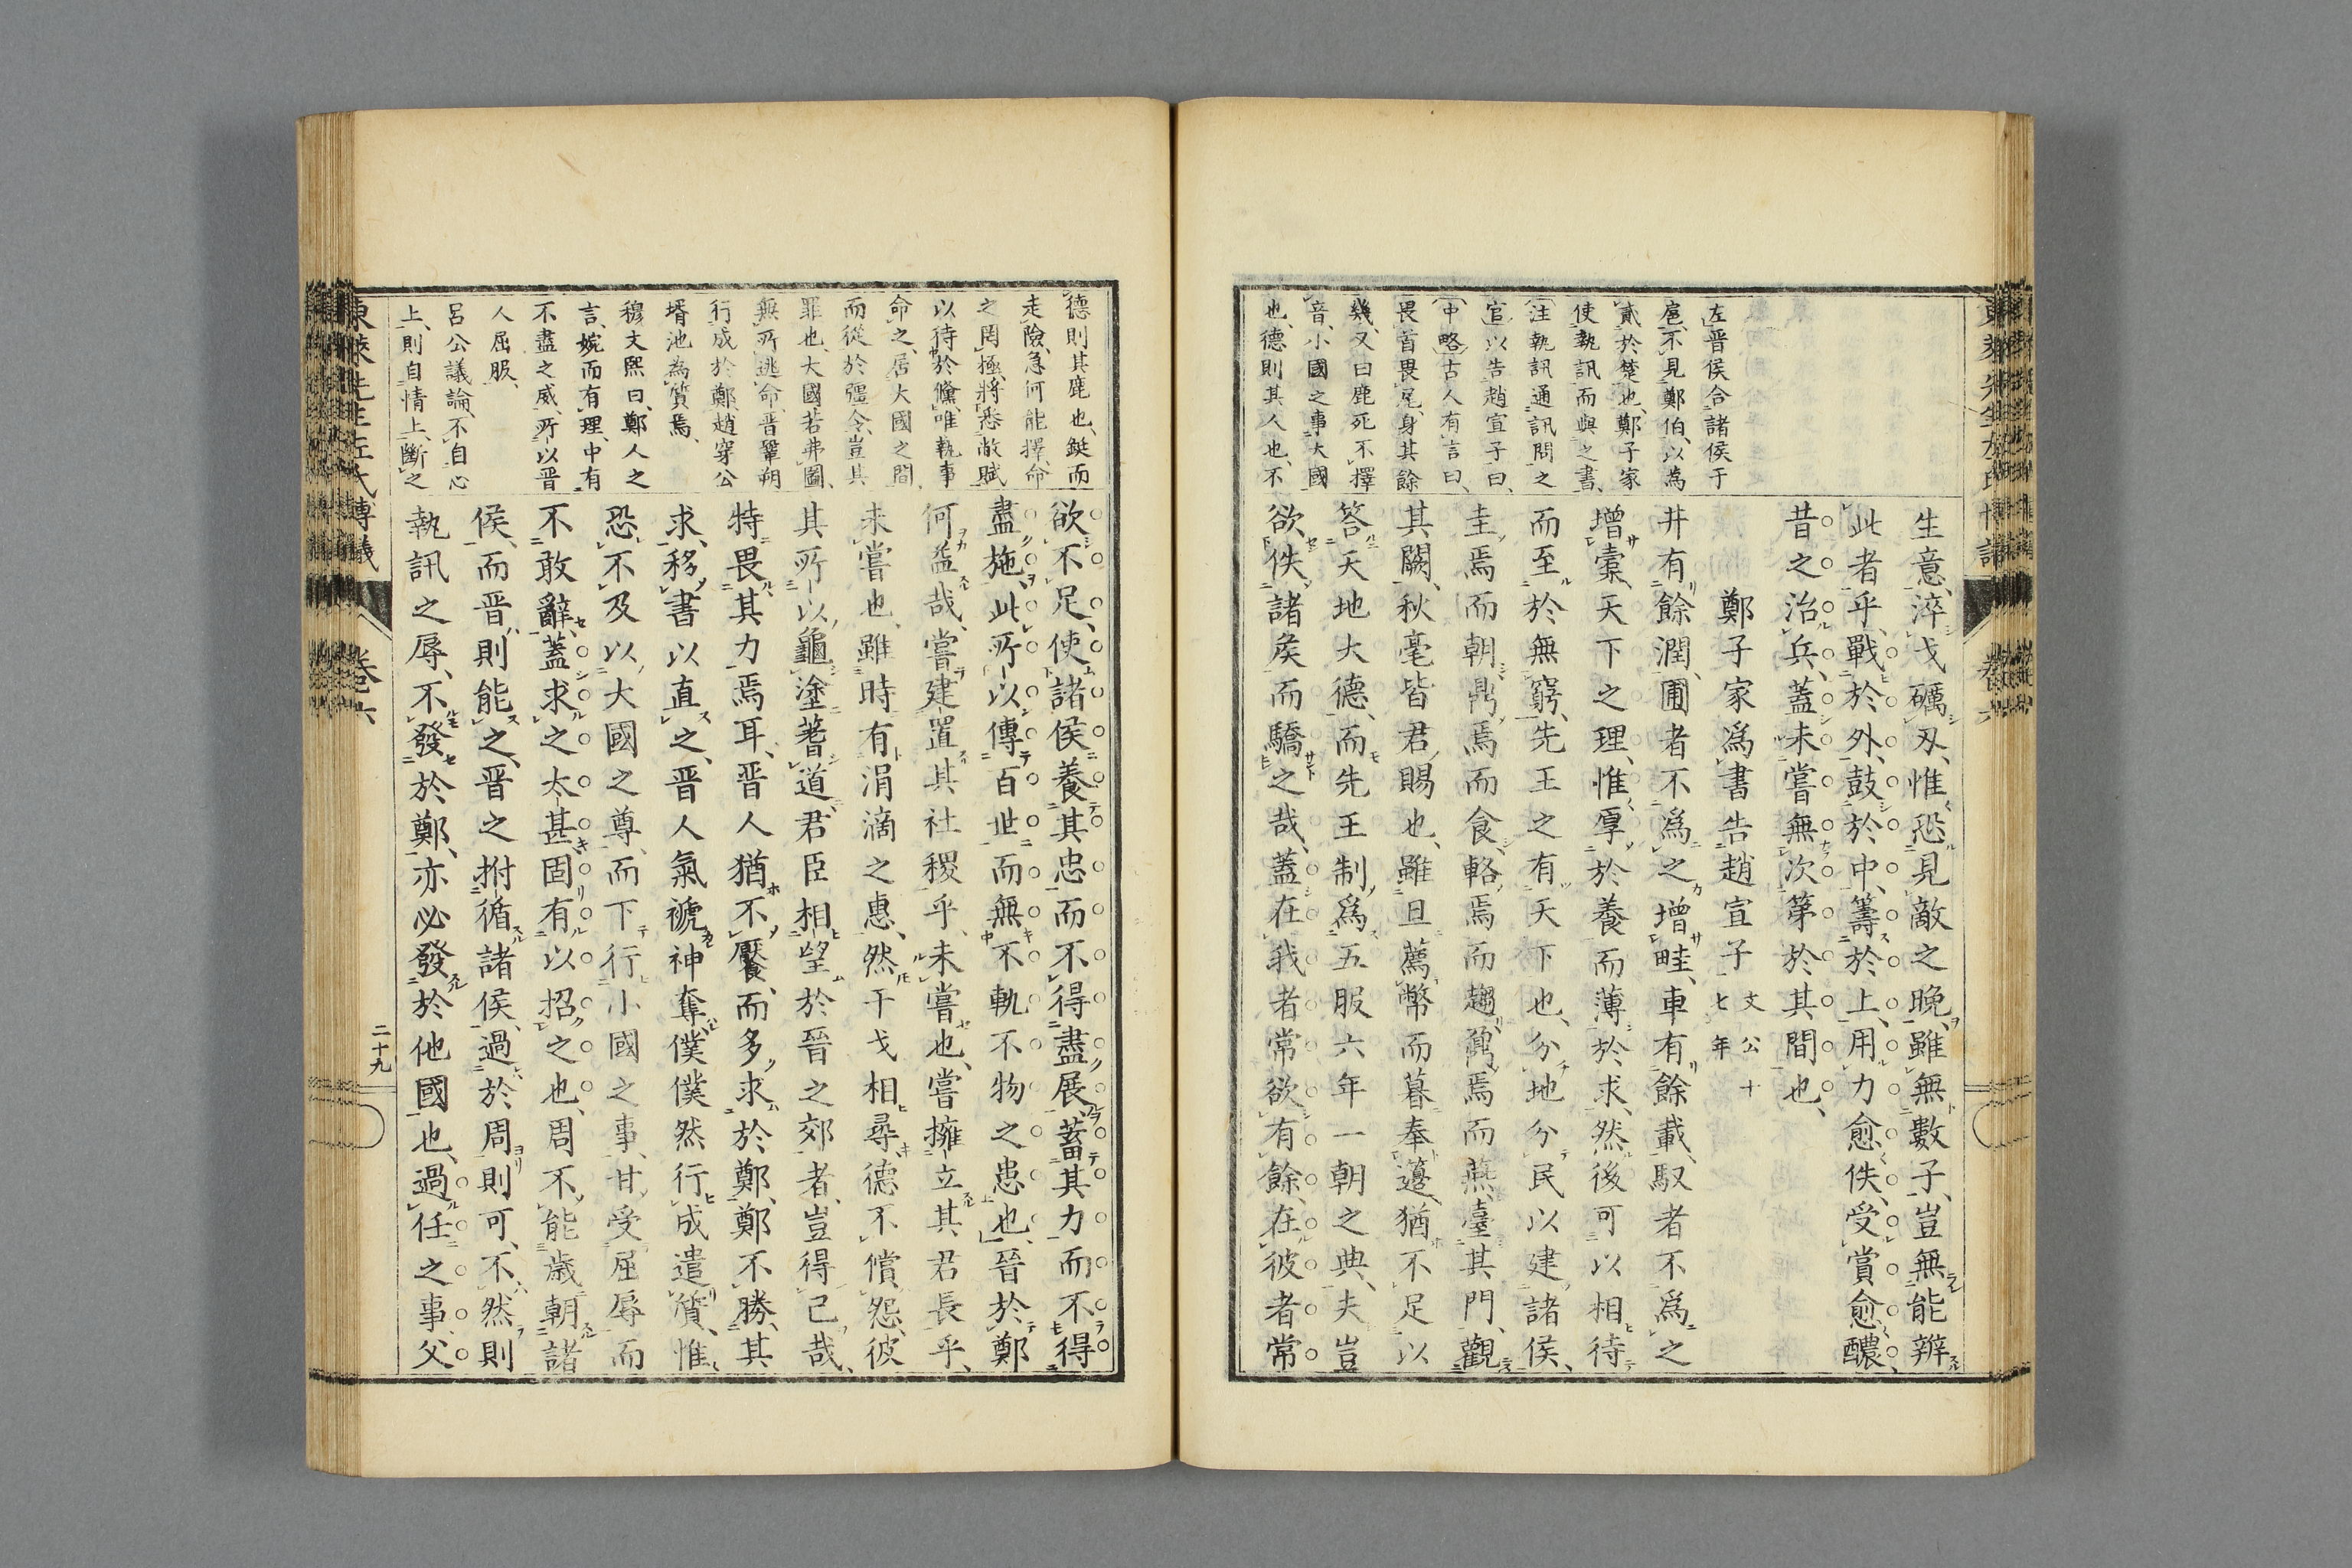 生意、淬戈礪刄、惟恐見敵之晚、雖無數子、豈無能辨
此者乎、戰於外、鼓於中、籌於上、用力愈佚、受賞愈醲、
昔之治兵、蓋未嘗無次第於其間也、
鄭子家爲書告趙宣子 文公十七年
井有餘潤、圃者不爲之增畦、車有餘載、馭者不爲之
增橐、天下之理、惟厚於養而薄於求、然後可以相待
而至於無窮、先王之有天下也、分地分民以建諸侯、
圭焉而朝、鼎焉而食、輅焉而趨、鸞焉而燕、臺其門、觀
其闕、秋毫皆君賜也、雖旦薦幣而暮奉𨘢、猶不足以
答天地大德、而先王制爲五服六年一朝之典、夫豈
欲佚諸矦而驕之哉、蓋在我者常欲有餘、在彼者常
左晋侯合諸侯于
扈、不見鄭伯、以為
貳於楚也、鄭子家
使執訊而與之書、
注執訊通訊問之
官以告趙宣子曰、
中略古人有言曰、
畏首畏尾、身其餘
幾、又曰鹿死不擇
音、小國之事大國
也、德則其人也、不
德則其鹿也、鋌而
走險、急何能擇、命
之罔極、將悉敝賦
以待於儵、唯執事
命之、居大國之間、
而從於彊令、豈其
罪也、大國若弗圖、
無所逃命、晋鞏朔
行成於鄭、趙穿公
壻池為質焉、
穆文熙曰、鄭人之
言、婉而有理、中有
不盡之威、所以晋
人屈服、
呂公議論、不自心
上、則自情上、斷之
欲不足、使諸侯養其忠而不得盡展、蓄其力而不得
盡施、此所以傳百世而無不軌不物之患也、晉於鄭
何益哉、嘗建置其社稷乎、未嘗也、嘗擁立其君長乎、
未嘗也、雖時有涓滴之惠、然干戈相尋、德不償怨、彼
其所以龜塗蓍道、君臣相望於晉之郊者、豈得已哉、
特畏其力焉耳、晋人猶不饜、而多求於鄭、鄭不勝其
求、移書以直之、晋人氣褫神奪、僕僕然行成遣質、惟
恐不及以大國之尊、而下行小國之事、甘受屈辱而
不敢辭、蓋求之太甚、固有以招之也、周不能歲朝諸
侯、而晋則能之、晋之拊循諸侯、過於周則可、不然則
執訊之辱、不發於鄭、亦必發於他國也、過任之事、父
東萊先生左氏博議
卷六
二十九